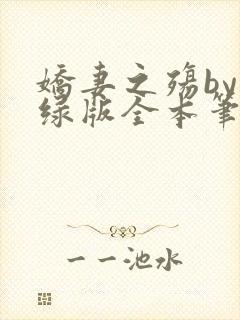 嬌妻之殤by
绿版全本筆
一一池水